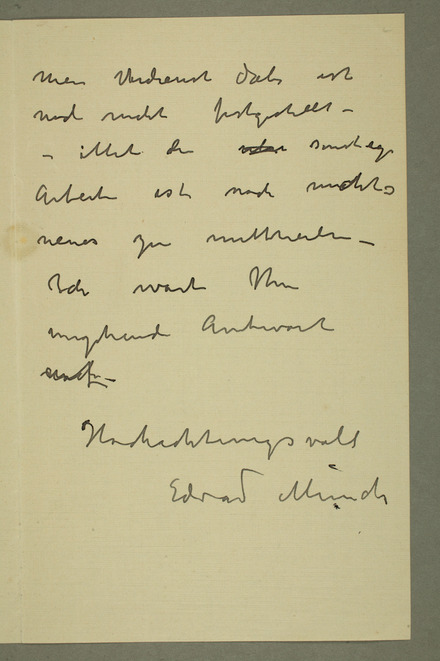 mein Verdienst dabei ist
noch nicht festgestellt –
– Mit den sonstige
Arbeiten ist noch nichts
neues zu mittheilen –
Ich warte Ihre
umgehende Antwort
Hochachtungsvoll
Edvard Munch